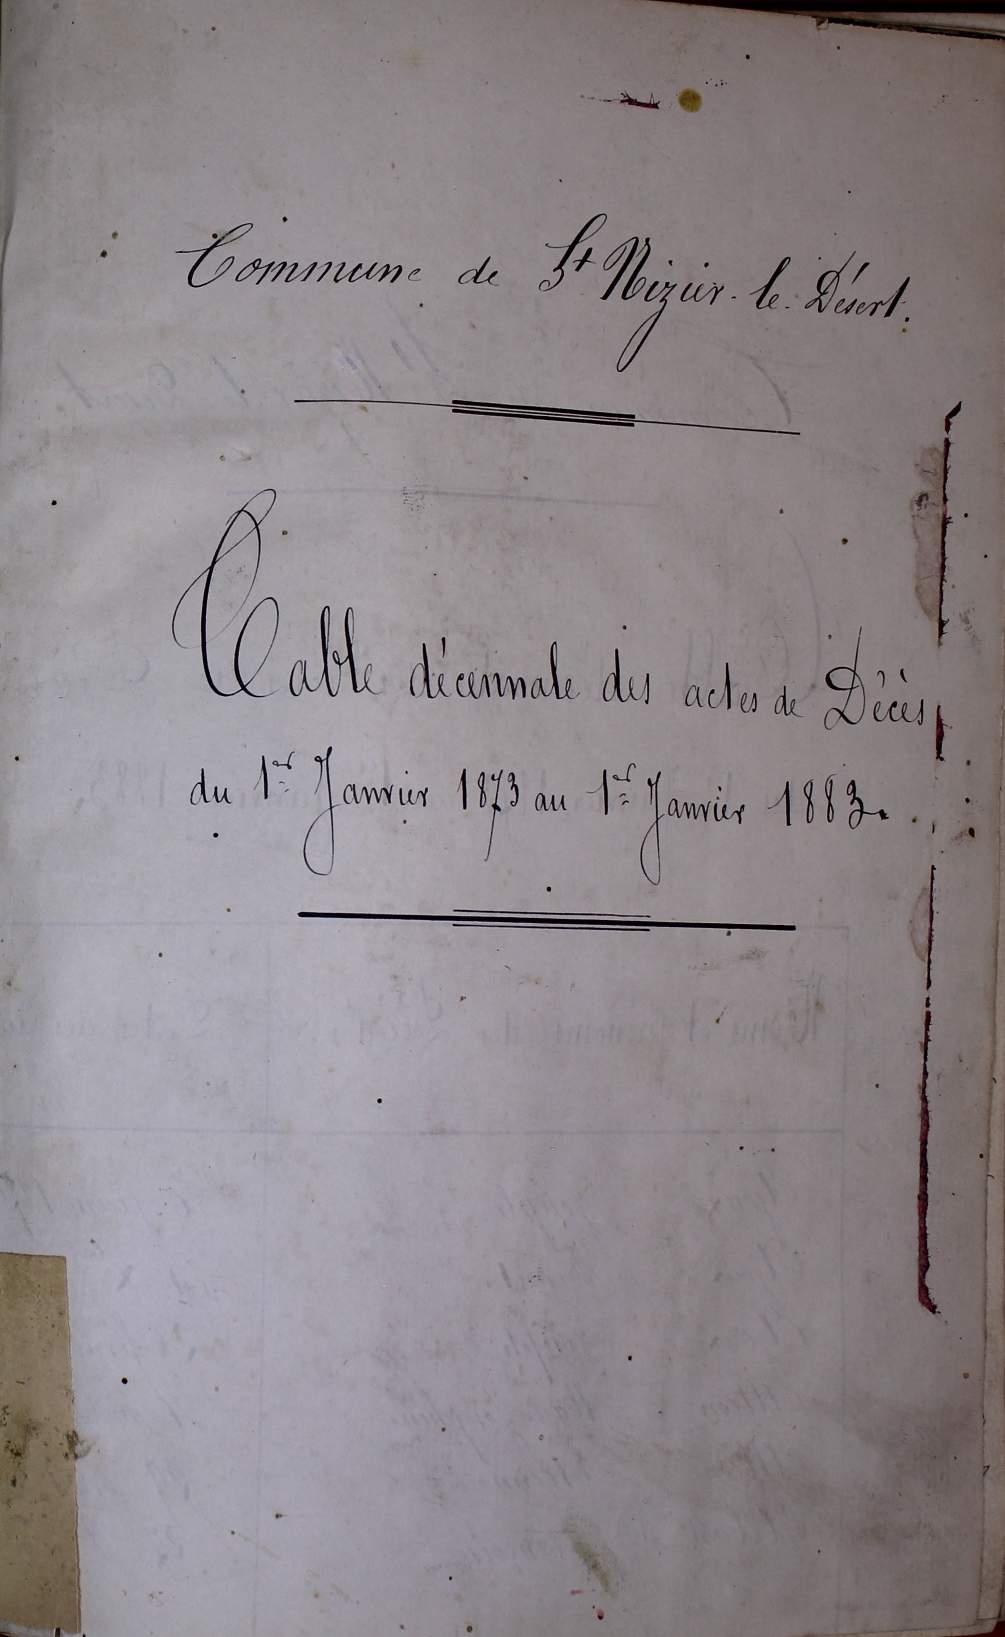 Commune de St Nizier-le-Désert.
Table décennale des actes de Décès
du 1er Janvier 1873 au 1er Janvier 1883.